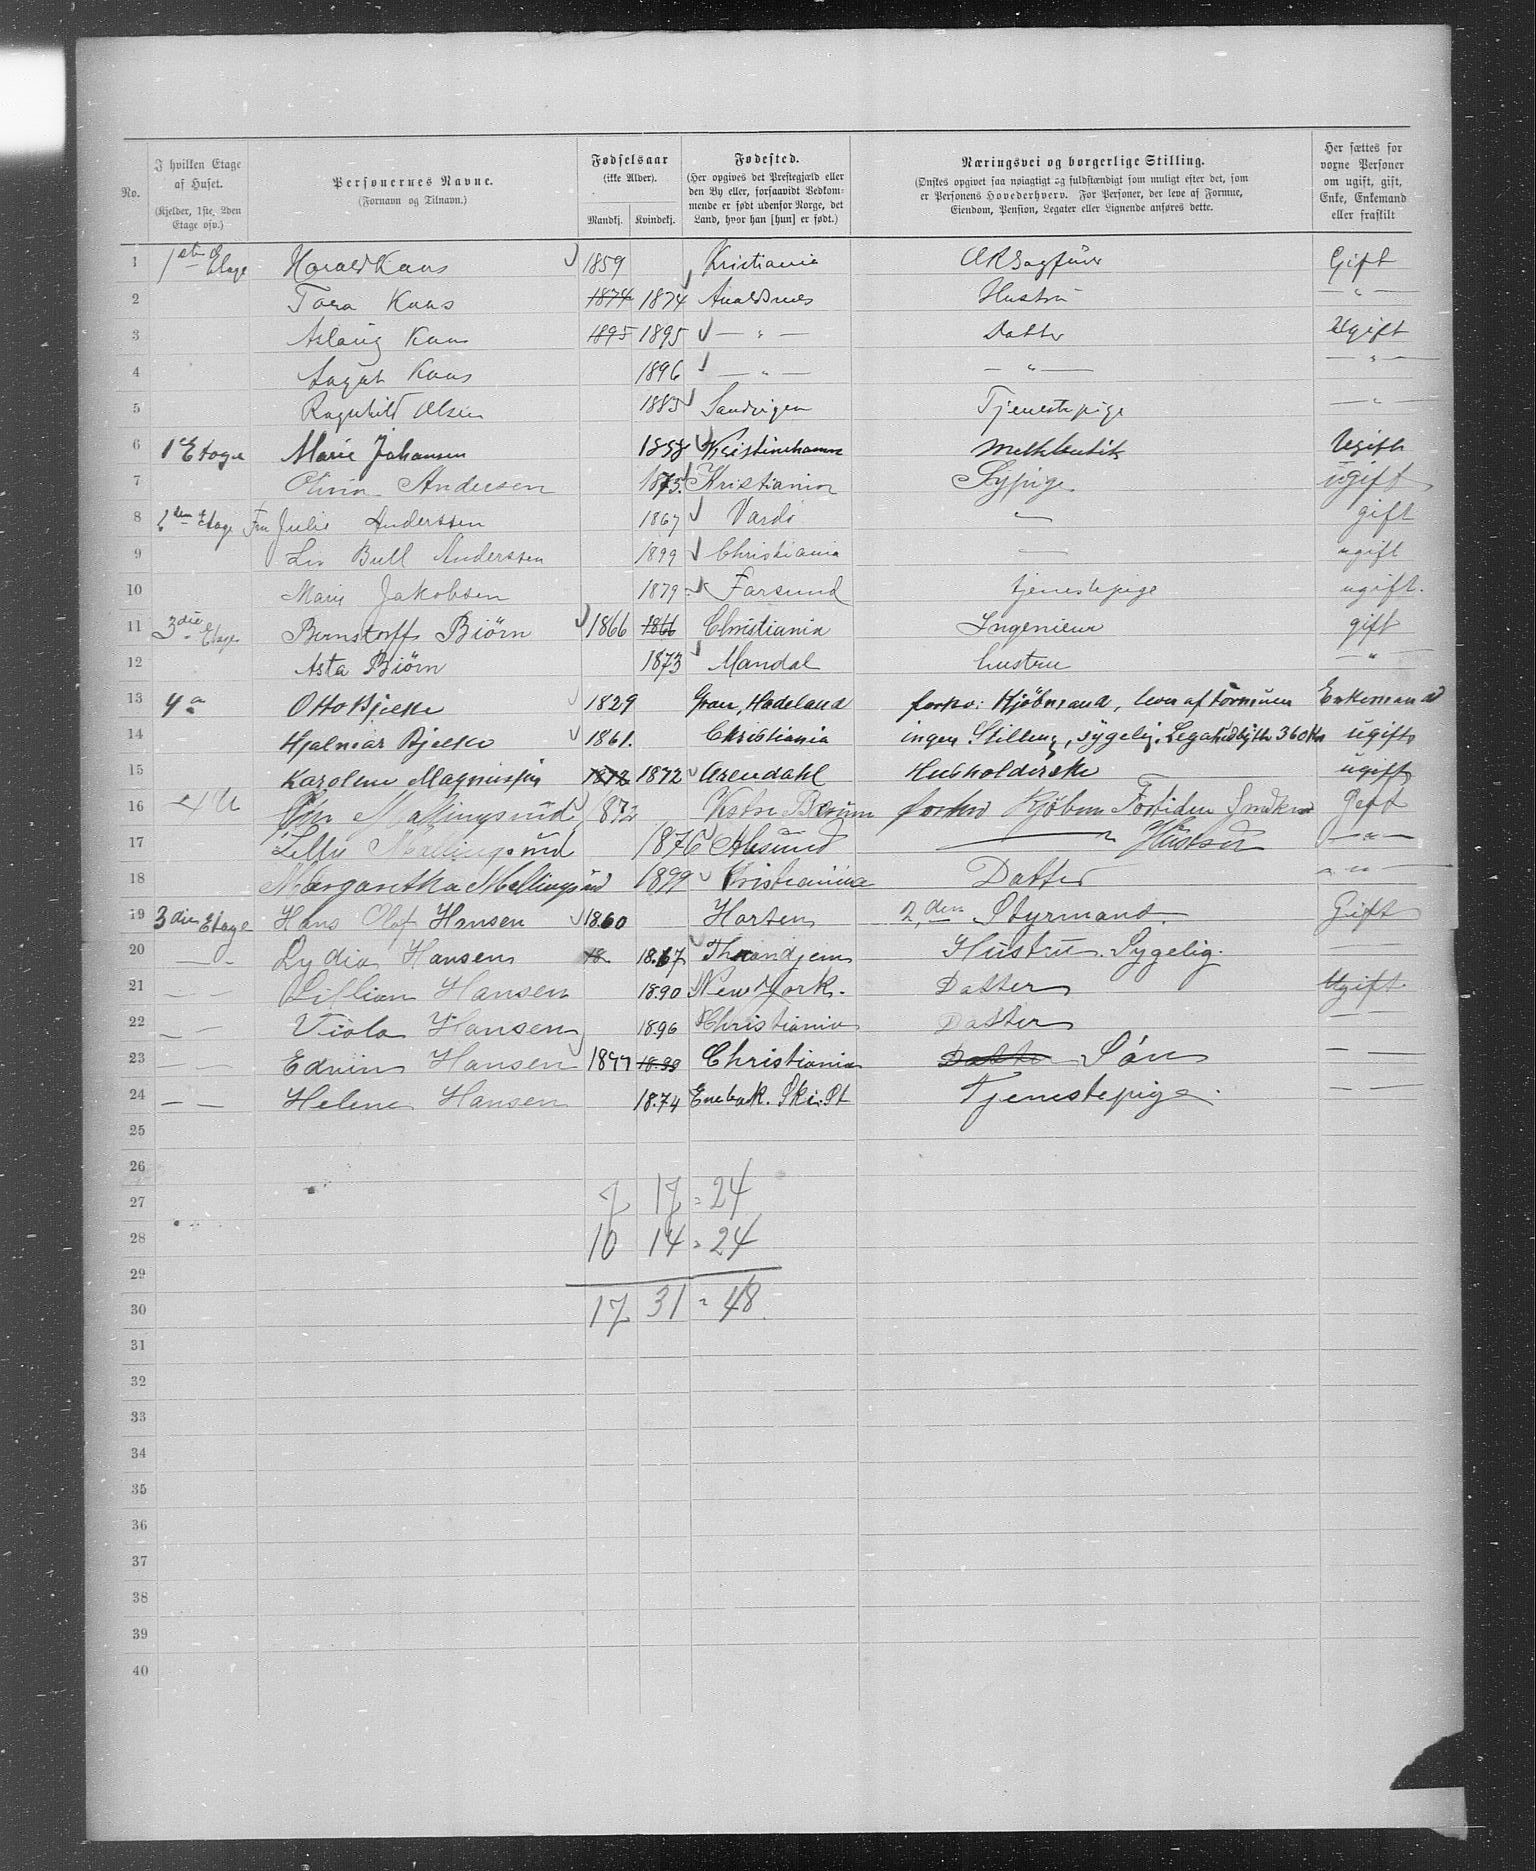 No. | I hvilken Etage af Huset. (Kjelder, 1ste, 2den Etage osv.) | Personernes Navne. (Fornavn og Tilnavn.) | Fødselsaar (ikke Alder). Mandkj. | Kvindekj. | Fødested. (Her opgives det Prestegjæld eller den By eller, forsaavidt Vedkommende er født udenfor Norge, det Land, hvor han [hun] er født.) | Næringsvei og borgerlige Stilling. (Ønskes opgivet saa nøiagtigt og fuldstændigt som muligt efter det, som er Personens Hovederhverv. For Personer, der leve af Formue, Eiendom, Pension, Legater eller Lignende anføres dette.) | Her sættes for voxne Personer om ugift, gift, Enke, Enkemand eller fraskilt
1 1ste Etage Harald Kaas 1859 Kristiania ORSagfører Gift
2 Tora Kaas 1874 1874 Avaldsnes Hustru — " —
3 Aslaug Kaas 1895 1895 — " — Datter Ugift
4 Kaas 1896 — " — — " — — " —
5 Ragnhild Olsen 1883 Sandvigen Tjenestepige — " —
6 1 Etage Marie Johansen 1858 Kristinehamn Melkbutik Ugift
7 Olivia Andersen 1875 Kristiania Sypige ugift
8 den Etage Fru Julie Anderssen 1867 Vardö — gift
9 Liv Bull Anderssen 1899 Christiania — ugift
10 Marie Jakobsen 1879 Farsund tjenestepige ugift.
11 3die Etage Bernstorff Biörn 1866 1866 Christiania Ingenieur gift
12 Asta Biörn 1873 Mandal hustru — " —
13 4 Otto Bjelke 1829 Gran, Hadeland forhv: Kjöbmand, lever af formuen Enkemand
14 Hjalmar Bjelke 1861. Christiania ingen Stilling, sygelig. Legatudbytte 360 Kr ugift
15 Karoline Magnussen 1872 1872 Arendahl Husholderske ugift
16 4 Mellingsund 1872 Vestre Bærum forhv Kjöbm Fortiden Gift
17 Lillie Mellingsund 1876 Alesund — Hustru — " —
18 Margaretha Mellingsund 1899 Kristiania Datter — " —
19 3die Etage Hans Olaf Hansen 1860 Horten 2den Styrmand. Gift
20 — Lydia Hansen 18 1867 Throndjem Hustru. Sygelig. —
21 — — Lillian Hansen 1890 New York. Datter Ugift
22 — — Viola Hansen 1896 Christiania Datter —
23 — — Edvin Hansen 1899 1899 Christiania Datter Sön — —
24 — — Helene Hansen 1874 Enebak. Ski. St Tjenestepige. — —
25
26
27 7 17 = 24
28 10 14 = 24
29
30 17 31 = 48
31
32
33
34
35
36
37
38
39
40